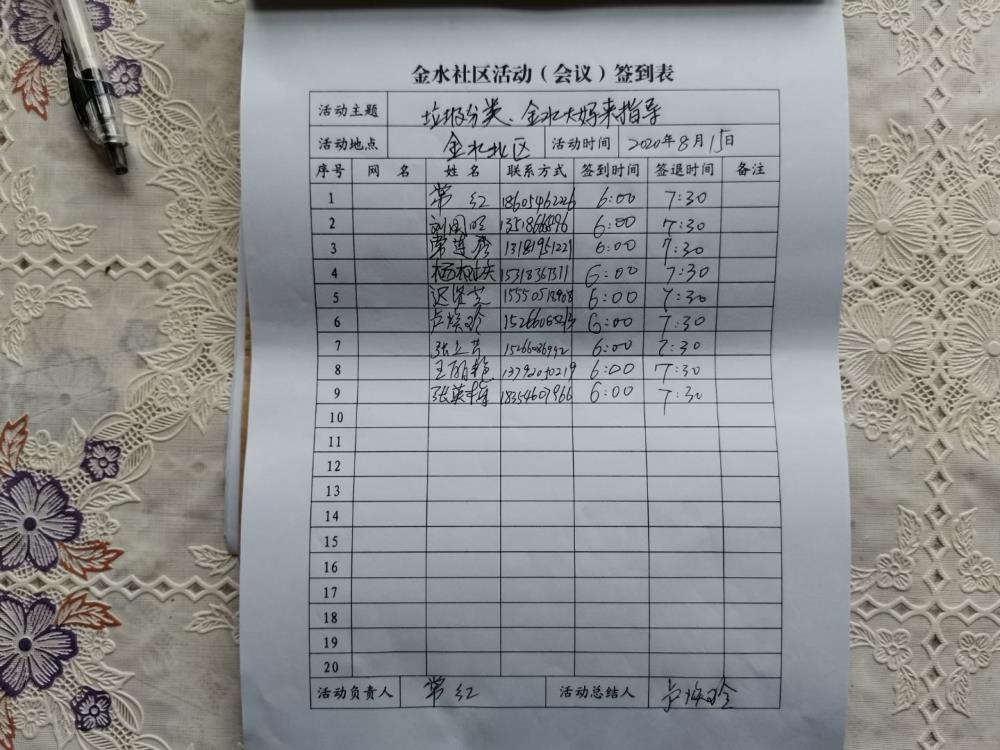 金水社区活动（会议）签到表
活动主题 垃圾分类、金水大姐来指导
活动地点 金水北区 活动时间 2020年8月15日
序号 网 名 姓 名 联系方式 签到时间 签退时间 备注
1 常红 18605462226 6:00 7:30
2 6:00 7:30
3 13181951221 6:00 7:30
4 15318367371 6:00 7:30
5 6:00 7:30
6 卢焕玲 6:00 7:30
7 张立芳 15266086942 6:00 7:30
8 王丽艳 6:00 7:30
9 18354607966 6:00 7:30
10
11
12
13
14
15
16
17
18
19
20
活动负责人 常红 活动总结人 卢焕玲